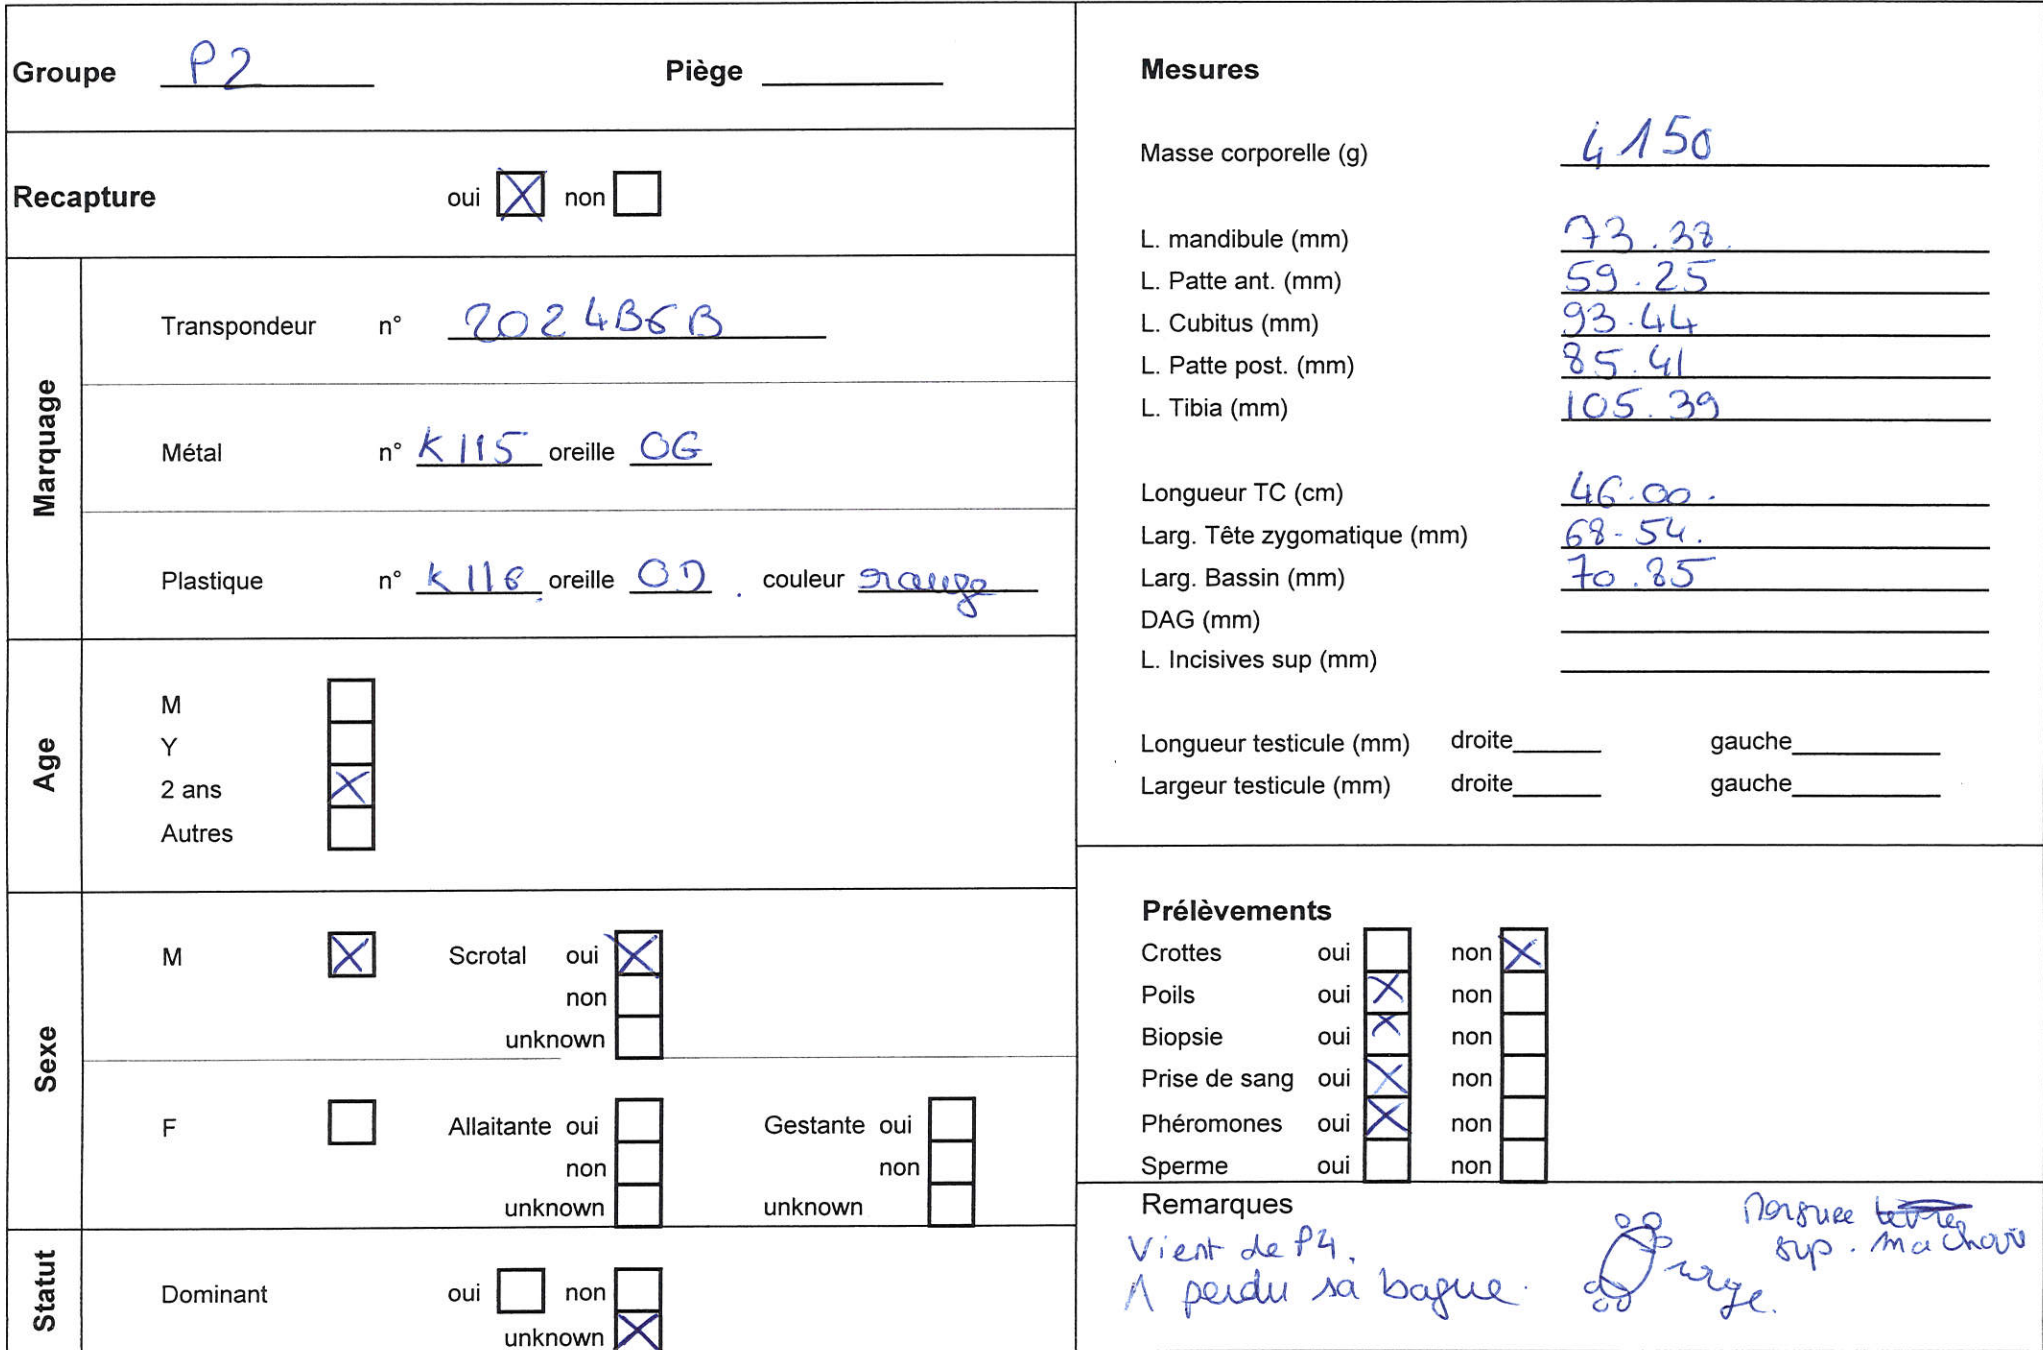 Groupe P2 Piège
Recapture oui non
Marquage
Transpondeur n° 2024B6B
Métal n° K115 oreille OG
Plastique n° K116 oreille OD couleur rouge
Age
M
Y
2 ans
Autres
Sexe
M Scrotal oui
non
unknown
F Allaitante oui Gestante oui
non non
unknown unknown
Statut
Dominant oui non
unknown
Mesures
Masse corporelle (g) 4150
L. mandibule (mm) 73.38
L. Patte ant. (mm) 59.25
L. Cubitus (mm) 93.44
L. Patte post. (mm) 85.41
L. Tibia (mm) 105.39
Longueur TC (cm) 46.00
Larg. Tête zygomatique (mm) 68.54
Larg. Bassin (mm) 70.85
DAG (mm)
L. Incisives sup (mm)
Longueur testicule (mm) droite gauche
Largeur testicule (mm) droite gauche
Prélèvements
Crottes oui non
Poils oui non
Biopsie oui non
Prise de sang oui non
Phéromones oui non
Sperme oui non
Remarques
Vient de P4.
A perdu sa bague.
rouge.
Morsure
sup. machoire